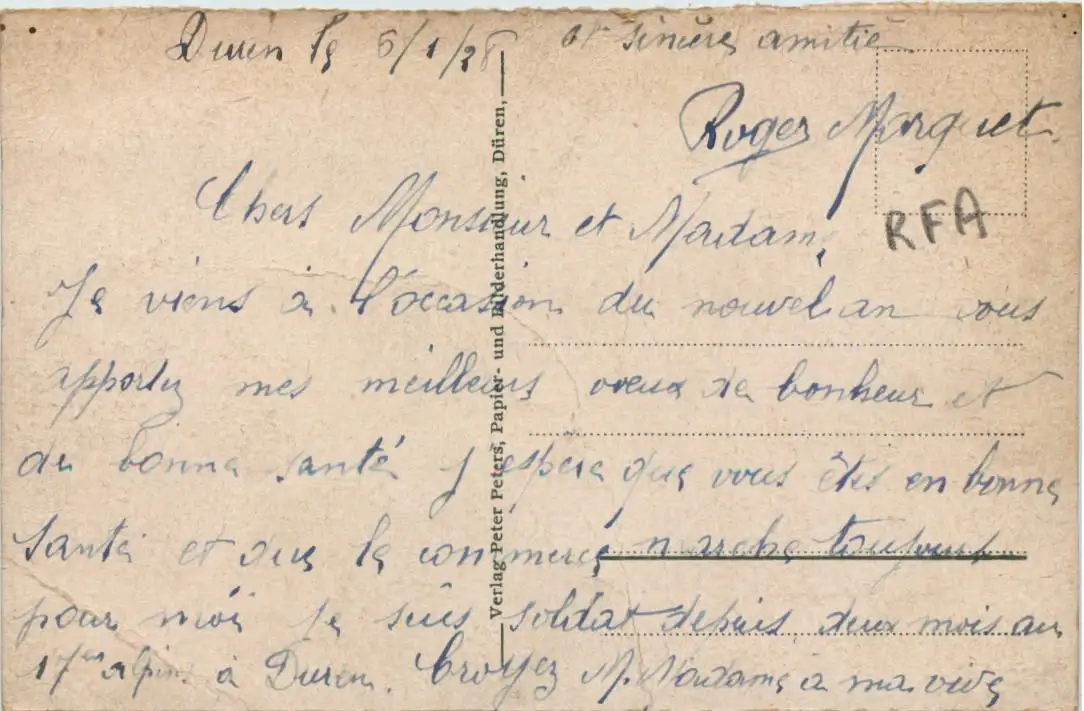 Duren le 6/1/28
Chers Monsieur et Madame
Je viens à l'occasion du nouvel an vous
apporter mes meilleurs vœux de bonheur et
de bonne santé j espère que vous êtes en bonne
santé et que le commerce marche toujours
pour moi je suis soldat depuis deux mois au
17em alpins à Duren. Croyez M. Madame à ma vive
et sincère amitié
Roger Marquet
RFA
Verlag Peter Peters, Papier- und Bilderhandlung, Düren,